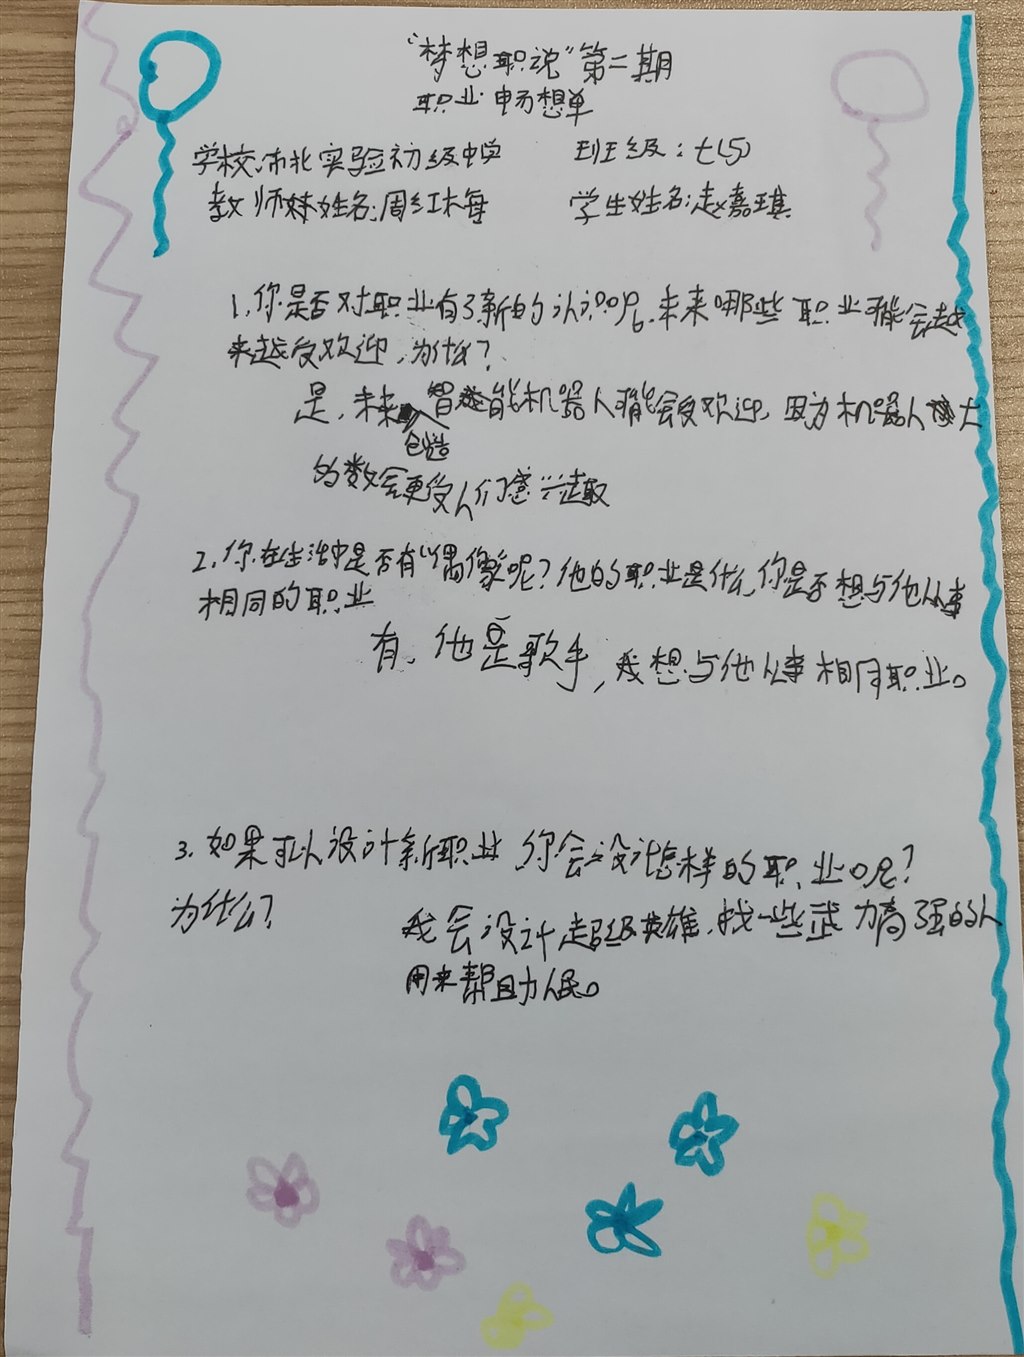 “梦想职说”第二期
职业畅想单
学校:市北实验初级中学 班级:七(5)
教师妹姓名:周红梅 学生姓名:赵嘉琪
1.你是否对职业有了新的认识呢.未来哪些职业可能会越
来越受欢迎,为什么?
是.未来创造智能机器人可能会受欢迎,因为机器人大
的数会更受人们感兴趣
2.你在生活中是否有“偶像”呢?他的职业是什么,你是否想与他从事
相同的职业
有、他是歌手,我想与他从事相同职业。
3.如果可以设计新职业 你会设计怎样的职业呢?
为什么?
我会设计超级英雄.找一些武力高强的人
用来帮助人民。